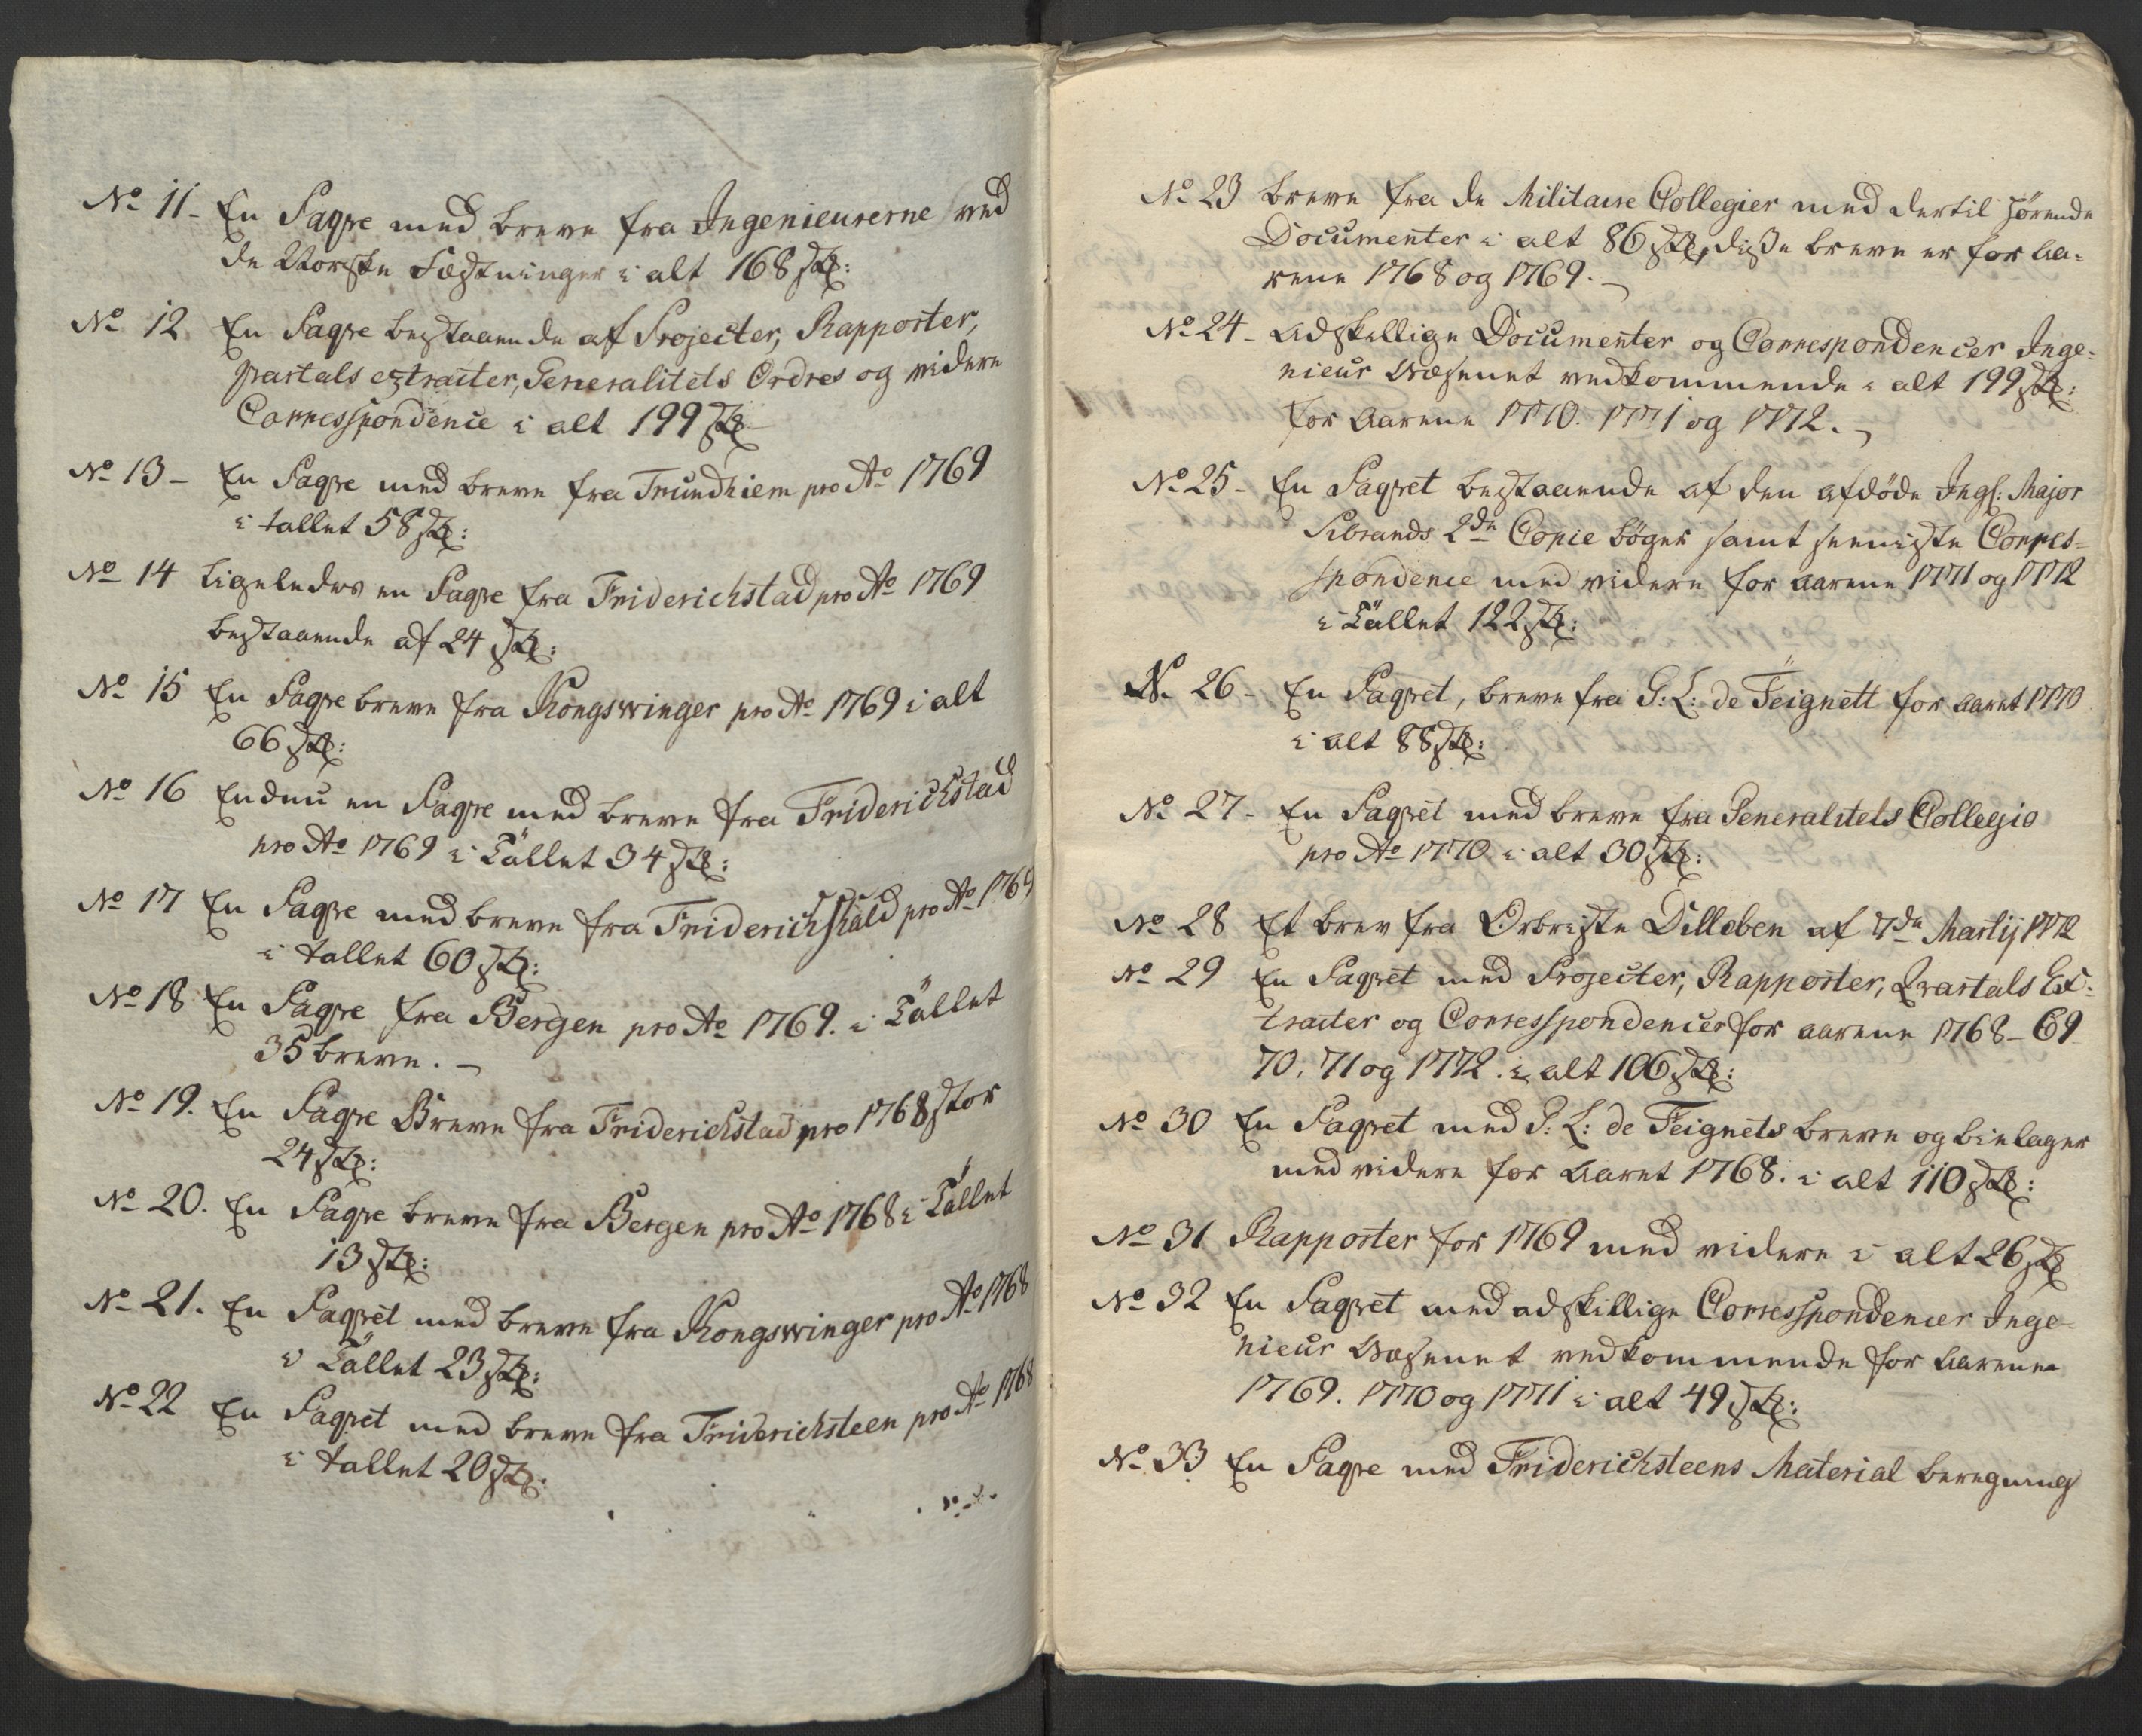 No 11 - En Paqve med breve fra Ingenieurerne ved
de Norske Fæstninger i alt 168 stk:
No 12 En Paqve bestaaende af Projecter, Rapporter,
qvartals extracter, Generalitets Ordres og videre
Correspondence i alt 199 stk
No 13 - En Paqve med breve fra Trundhiem pro Ao 1769
i tallet 58 stk:
No 14 Ligeledes en Paqve fra Friderichstad pro Ao 1769
bestaaende af 24 stk:
No 15 En Paqve breve fra Kongswinger pro Ao 1769 i alt
66 stk:
No 16 Endnu en Paqve med breve fra Friderichstad
pro Ao 1769 i Tallet 34 stk:
No 17 En Paqve med breve fra Friderichshald pro Ao 1769
i tallet 60 stk:
No 18 En Paqve fra Bergen pro Ao 1769. i Tallet
35 breve. -
No 19. En Paqve Breve fra Friderichstad pro 1768 stor
24 stk:
No 20. En Paqve breve fra Bergen pro Ao 1768 i Tallet
13 stk:
No 21. En Paqvet med breve fra Kongswinger pro Ao 1768
i Tallet 23 stk:
No 22 En Paqvet med breve fra Friderichsteen pro Ao 1768
i tallet 20 stk:
No 23 breve fra de Militaire Collegier med dertil hørende
Documenter i alt 86 stk, disse breve er for Aa-
rene 1768 og 1769. -
No 24 - Adskellige Documenter og Correspondencer Inge-
nieur Wæsenet vedkommende i alt 199 stk:
for Aarene 1770. 1771 og 1772. -
No 25 - En Paqvet bestaaende af den afdøde Ing: Major
Sibrands 2de Copie bøger samt seeniste Corres-
pondence med videre for Aarene 1771 og 1772
i Tallet 122 stk:
No 26 - En Paqvet, breve fra G: L: de Feignett for aaret 1770
i alt 88 stk:
No 27 - En Paqvet med breve fra Generalitets Collegio
pro Ao 1770 i alt 30 stk:
No 28 Et brev fra Obriste Dilleben af 7de Martij 1772
No 29 En Paqvet med Projecter, Rapporter, Qvartals Ex-
tracter og Correspondencer for aarene 1768 - 69
70, 71 og 1772. i alt 106 stk:
No 30 En Paqvet med G: L: de Feignets breve og bielager
med videre for Aaret 1768. i alt 110 stk:
No 31 Rapporter for 1769 med videre i alt 26 stk
No 32 En Paqvet med adskillige Correspondencer Inge-
nieur Wæsenet vedkommende for Aarene
1769. 1770 og 1771 i alt 49 stk:
No 33 En Paqve med Friderichsteens Material beregning